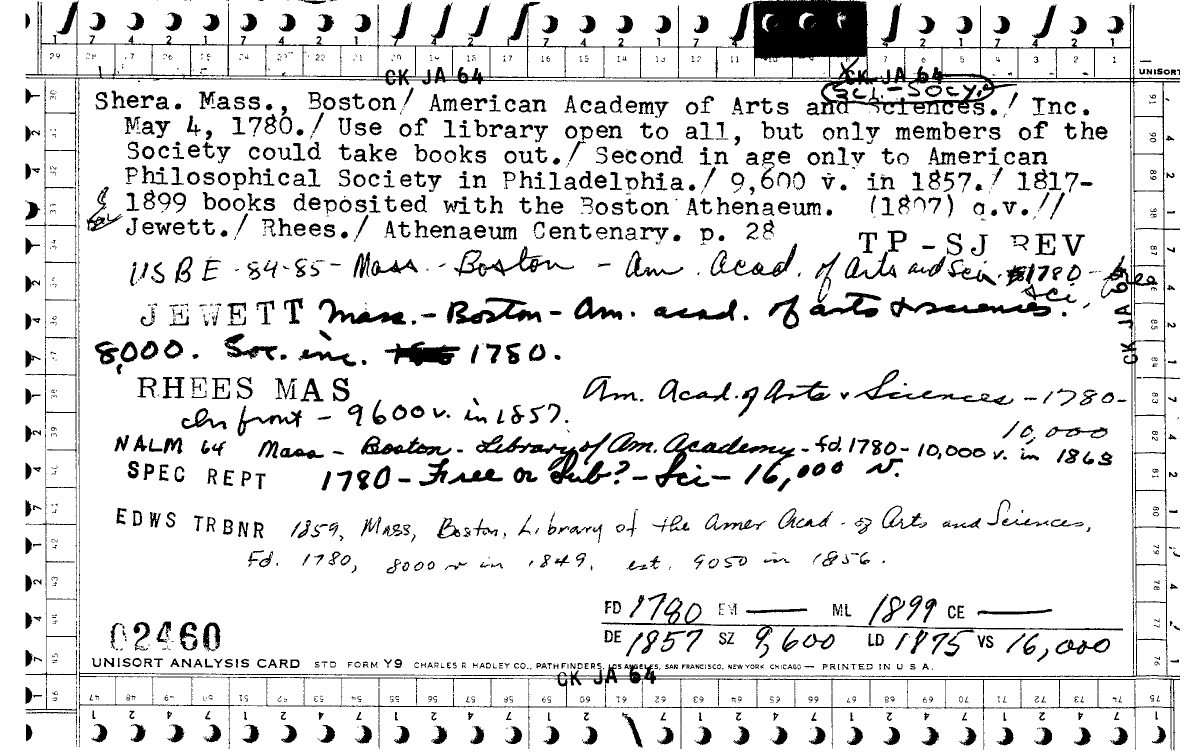 CK JA 64
CK JA 64
UNISORT
SCI.-SOCY.
Shera. Mass., Boston/ American Academy of Arts and Sciences./ Inc.
May 4, 1780./ Use of library open to all, but only members of the
Society could take books out./ Second in age only to American
Philosophical Society in Philadelphia./ 9,600 v. in 1857./ 1817-
1899 books deposited with the Boston Athenaeum. (1807) q.v.//
Jewett./ Rhees./ Athenaeum Centenary. p. 28
TP-SJ REV
USBE-84-85-Mass.-Boston - Am. Acad. of Arts and Sci. 1780 -
Sci,
JEWETT Mass.-Boston-Am. acad. of arts & sciences.
8,000. Soc. inc. 1780.
CK JA 64
RHEES MAS Am. Acad. of Arts & Sciences -1780-
On front - 9600 v. in 1857.
10,000
NALM 64 Mass - Boston - Library of Am. Academy - fd. 1780-10,000 v. in 1863
SPEC REPT 1780-Free or Sub?-Sci-16,000 v.
EDWS TRBNR 1859, Mass, Boston, Library of the Amer Acad. of Arts and Sciences,
Fd. 1780, 8000 v in 1849. est. 9050 in 1856.
FD 1780 EM — ML 1899 CE —
DE 1857 SZ 9,600 LD 1875 VS 16,000
02460
UNISORT ANALYSIS CARD STD FORM Y9 CHARLES R HADLEY CO., PATHFINDERS, LOS ANGELES, SAN FRANCISCO, NEW YORK CHICAGO — PRINTED IN U S A.
CK JA 64